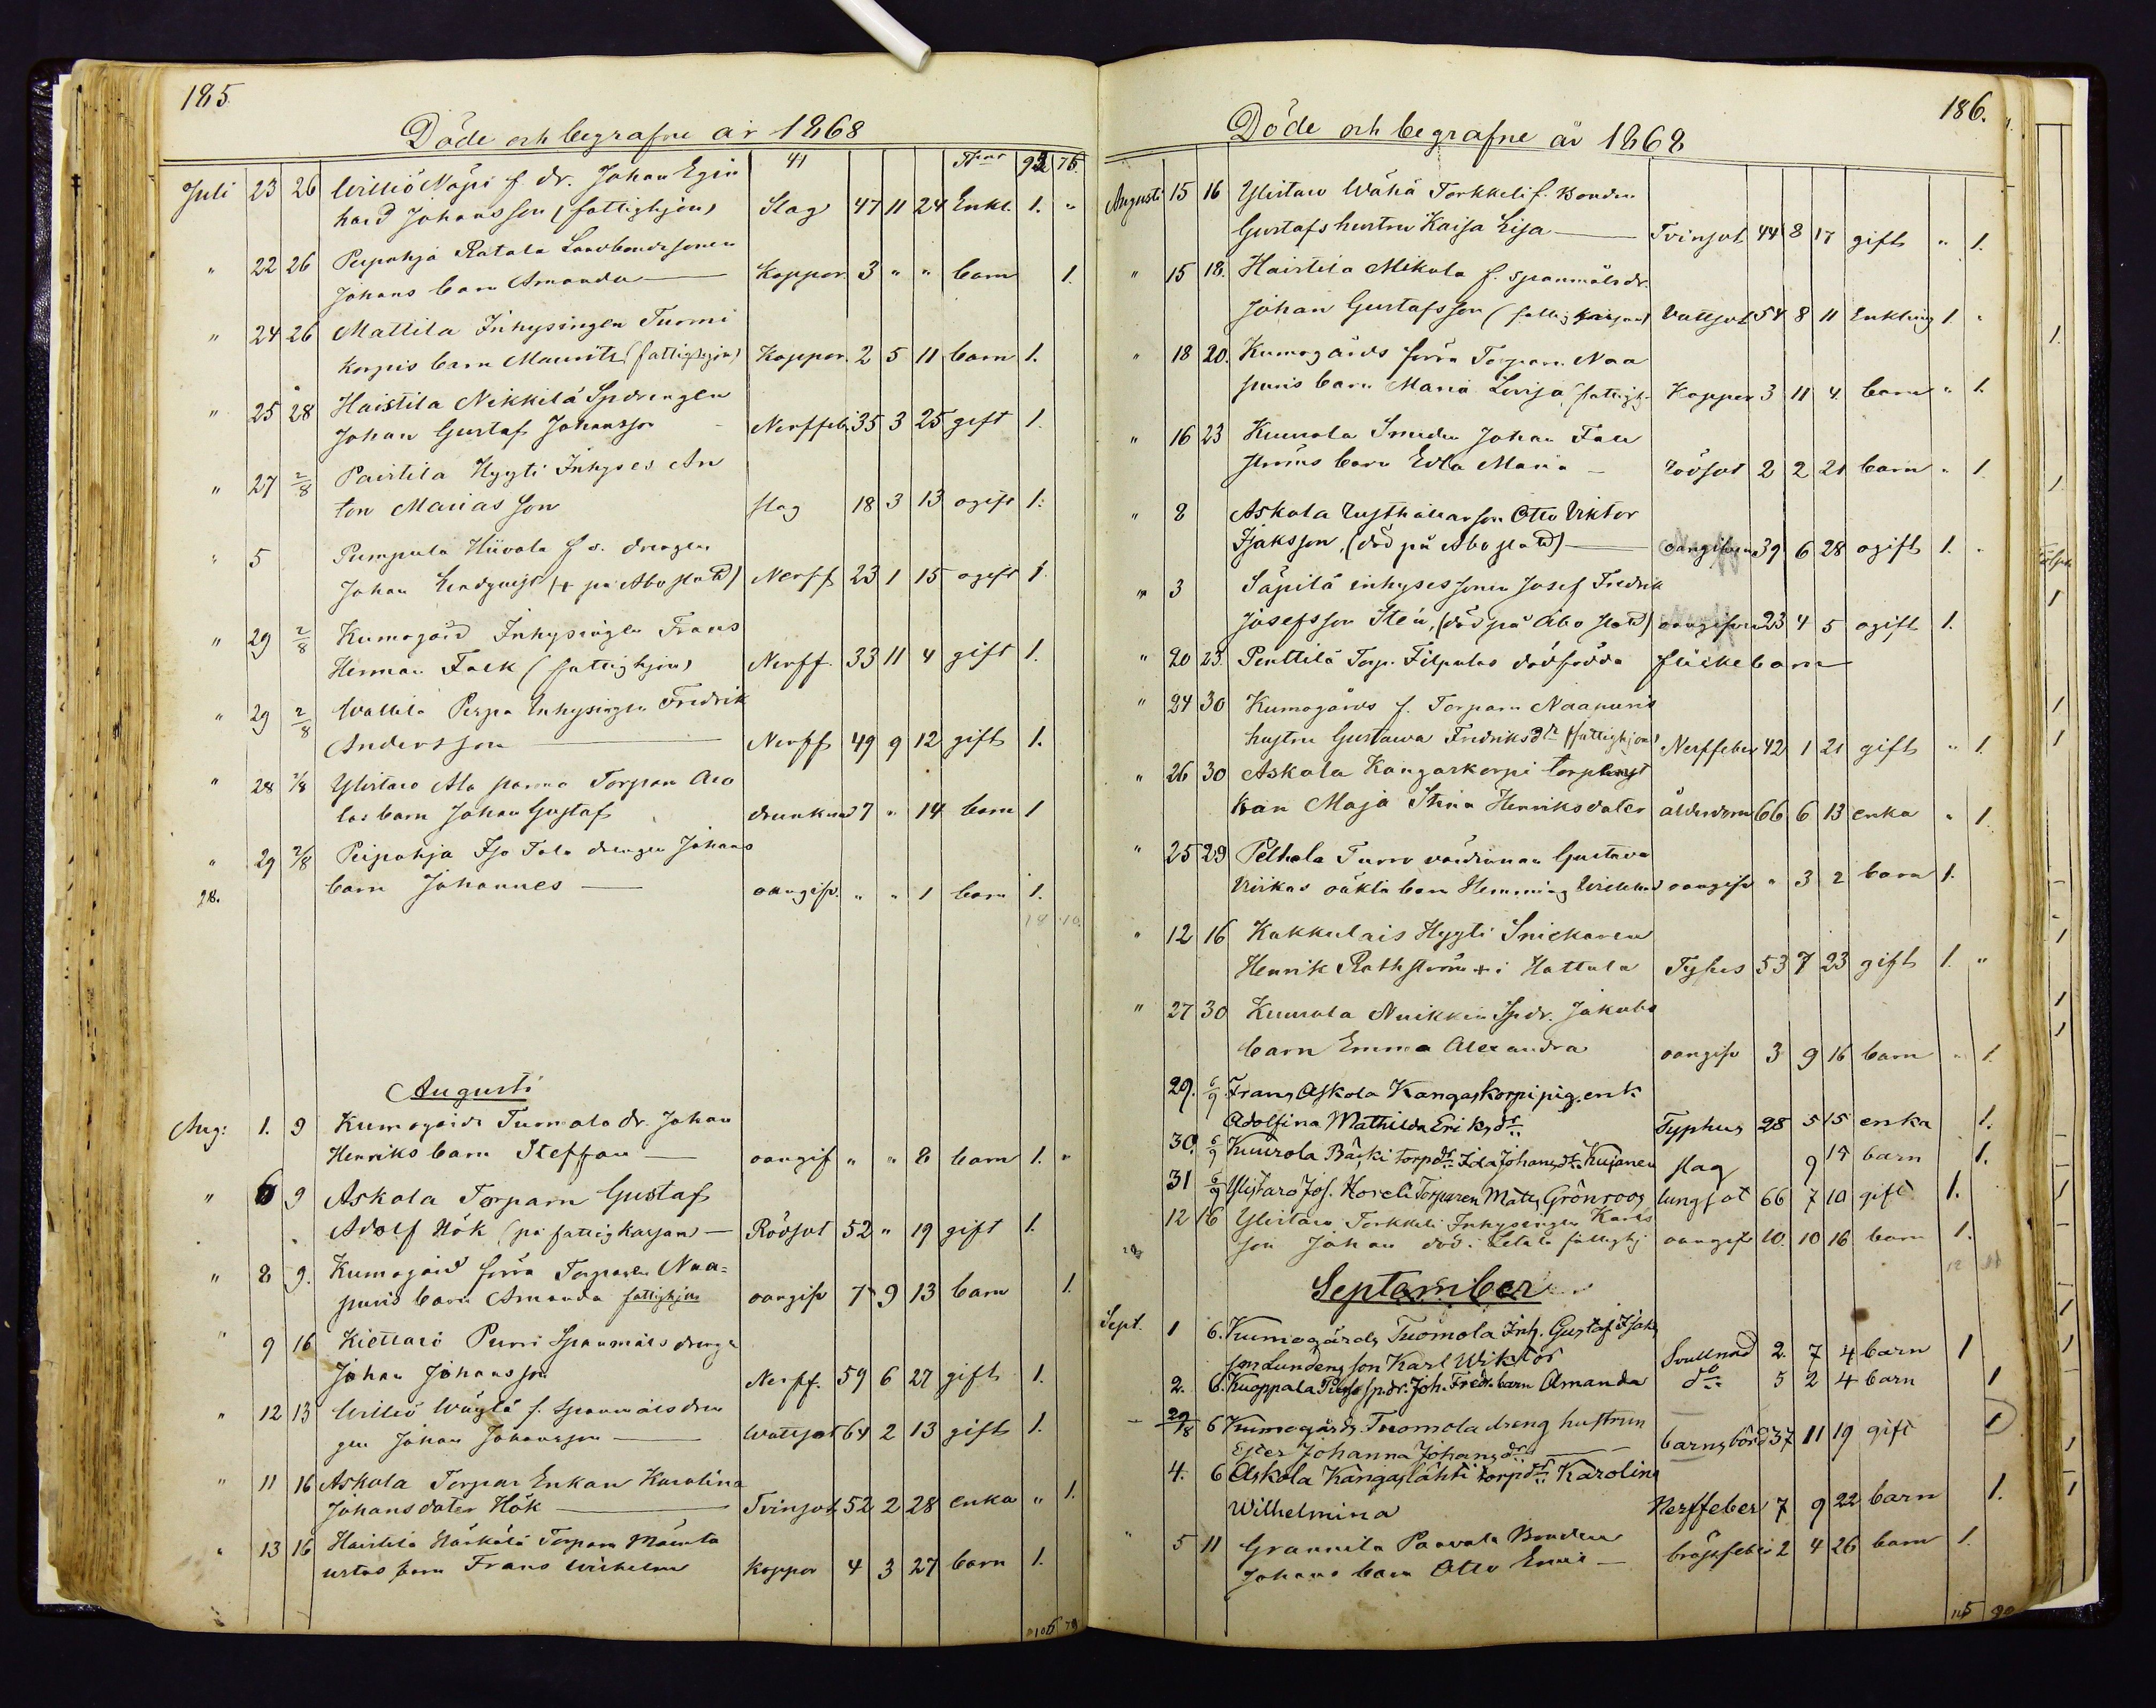 185
Döde och begrafne år 1868
41 Trspt 92 75.
Juli 23 26 Williö Näpi f. dr. Johan Egin
hard Johansson (fattighjon) Slag 47 11 24 Enkl. 1. "
" 22 26 Peipohja Ratala Landbondesonen
Johans barn Amanda — Koppor 3 " " barn 1.
" 24 26 Mattila Inhysingen Tuomi
korpis barn Mauritz (fattighjon) Koppor. 2 5 11 barn 1.
" 25 28 Haistila Nikkilä Spdrengen
Johan Gustaf Johansson Nerffeb. 35 3 25 gift 1.
" 27 2/8 Paistila Hyyti Inhyses An
ton Marias son slag 18 3 13 ogift 1.
" 5 Pumpula Hiivola f s. drengen
Johan Lindqvist († på Åbo stad) Nerff 23 1 15 ogift 1.
" 29 2/8 Kumogård Inhysingen Frans
Herman Falk (fattighjon) Nerff. 33 11 4 gift 1.
" 29 2/8 Wattila Perpa Inhysingen Fredrik
Andersson — Nerff 49 9 12 gift 1.
" 28 2/8 Ylistaro Ala panna Torparn Aro
las barn Johan Gustaf drunknad 7 " 14 barn 1
" 29 2/8 Peipohja Iso Tala drengen Johans
barn Johannes — oangift. " " 1 barn 1.
28.
18 10.
Augusti
Aug: 1. 9 Kumogårds Tuomola dr. Johan
Henriks barn Steffan — oangif " " 8 barn 1. "
" 6 9 Askola Torparn Gustaf
Adolf Hök (på fattigkassan) — Rödsot 52 " 19 gift 1.
" 8 9. Kumogård förra Torparen Naa=
puris barn Amanda fattighjon oangift 7 9 13 barn 1.
" 9 16 Kiettari Purri Spanmåls drengen
Johan Johansson Nerff. 59 6 27 gift 1.
" 12 13 Williö Wäylä f. Spanmåls dren
gen Johan Johansson — Wattsot 64 2 13 gift 1.
" 11 16 Askola Torpar Enkan Karolina
Johansdoter Hök — Tvinsot 52 2 28 enka " 1.
" 13 16 Haistila Härkälä Torparn Mänta
ustas barn Frans Wilhelm Koppor 4 3 27 barn 1.
106 79
186.
Döde och begrafne år 1868
Augusti 15 16 Ylistaro Wähä Torkkeli f. Bonden
Gustafs hustru Kaisa Lisa — Tvinsot 44 8 17 gift " 1.
" 15 18. Haistila Mikola f. spanmålsdr.
Johan Gustafsson (fattigkassan) Vattsot 54 8 11 Enkling 1. "
" 18 20. Kumogårds förra Torparn Naa
puris barn Maria Lovisa (fattigh. Koppor 3 11 4 barn " 1.
" 16 23 Kuurola Smeden Johan Fale
ströms barn Edla Maria — Rödsot 2 2 21 barn " 1
" 8 Askola Rusthållarson Otto Viktor
Isaksson, (död på Åbo stad) — oangifven 39 6 28 ogift 1. "
" 3 Säpilä inhysessonen Josef Fredrik
Josefsson Sten, (död på Åbo stad) oangifven 23 4 5 ogift 1.
" 20 23. Penttilä Torp. Filpulas dödfödda flickebarn
" 24 30 Kumogårds f. Torparn Naapuris
hustru Gustawa Fredriksdr (fattighjon) Nerffeber 42 1 21 gift " 1.
" 26 30 Askola Kangaskorpi torphust
run Maja Stina Henriksdoter ålderdom 66 6 13 enka " 1.
" 25 29 Pelhola Turro värdinnan Gustava
Wirkas oäkta barn Hemming Wilhelm oangift " 3 2 barn 1.
" 12 16 Kakkulais Hyyti Snickaren
Henrik Rothström † i Hattula Tyfus 53 7 23 gift 1. "
" 27 30 Kuurola Nuikkin Spdr. Jakobs
barn Emma Alexandra oangift 3 9 16 barn " 1.
29. 6/9 Frans Askola Kangaskorpi pig. enk.
Adolfina Mathilda Eriksdr Typhus 28 5 15 enka 1.
30. 6/9 Kuurola Bäcki torpdr Ida Johansdr Kujanen slag 9 15 barn 1.
31 6/9 Ylistaro Jos. Horeli Torparen Matts Grönroos lungsot 66 7 10 gift 1.
12 16 Ylistaro Torkkeli Inhysingen Karls
son Johan död i Letala fattighj oangift 10. 10 16 barn 1.
12 11
September
Sept. 1 6. Kumogårds Tuomola Inh. Gustaf Isaks
son Lundens son Karl Wiktor Svullnad 2. 7 4 barn 1
2. 6. Kuoppala Pietso spdr. Joh. Fredr. barn Amanda do 5 2 4 barn 1
29/8 6 Kumogårds Tuomola dreng hustrun
Ester Johanna Johansdr — barnsbörd 37 11 19 gift 1
4. 6 Askola Kangaslahti torpdr Karolina
Wilhelmina Nerffeber 7 9 22 barn 1.
" 5 11 Grannila Paavola Bonden
Johans barn Otto Emil — bröstfeber 2 4 26 barn 1.
115 90